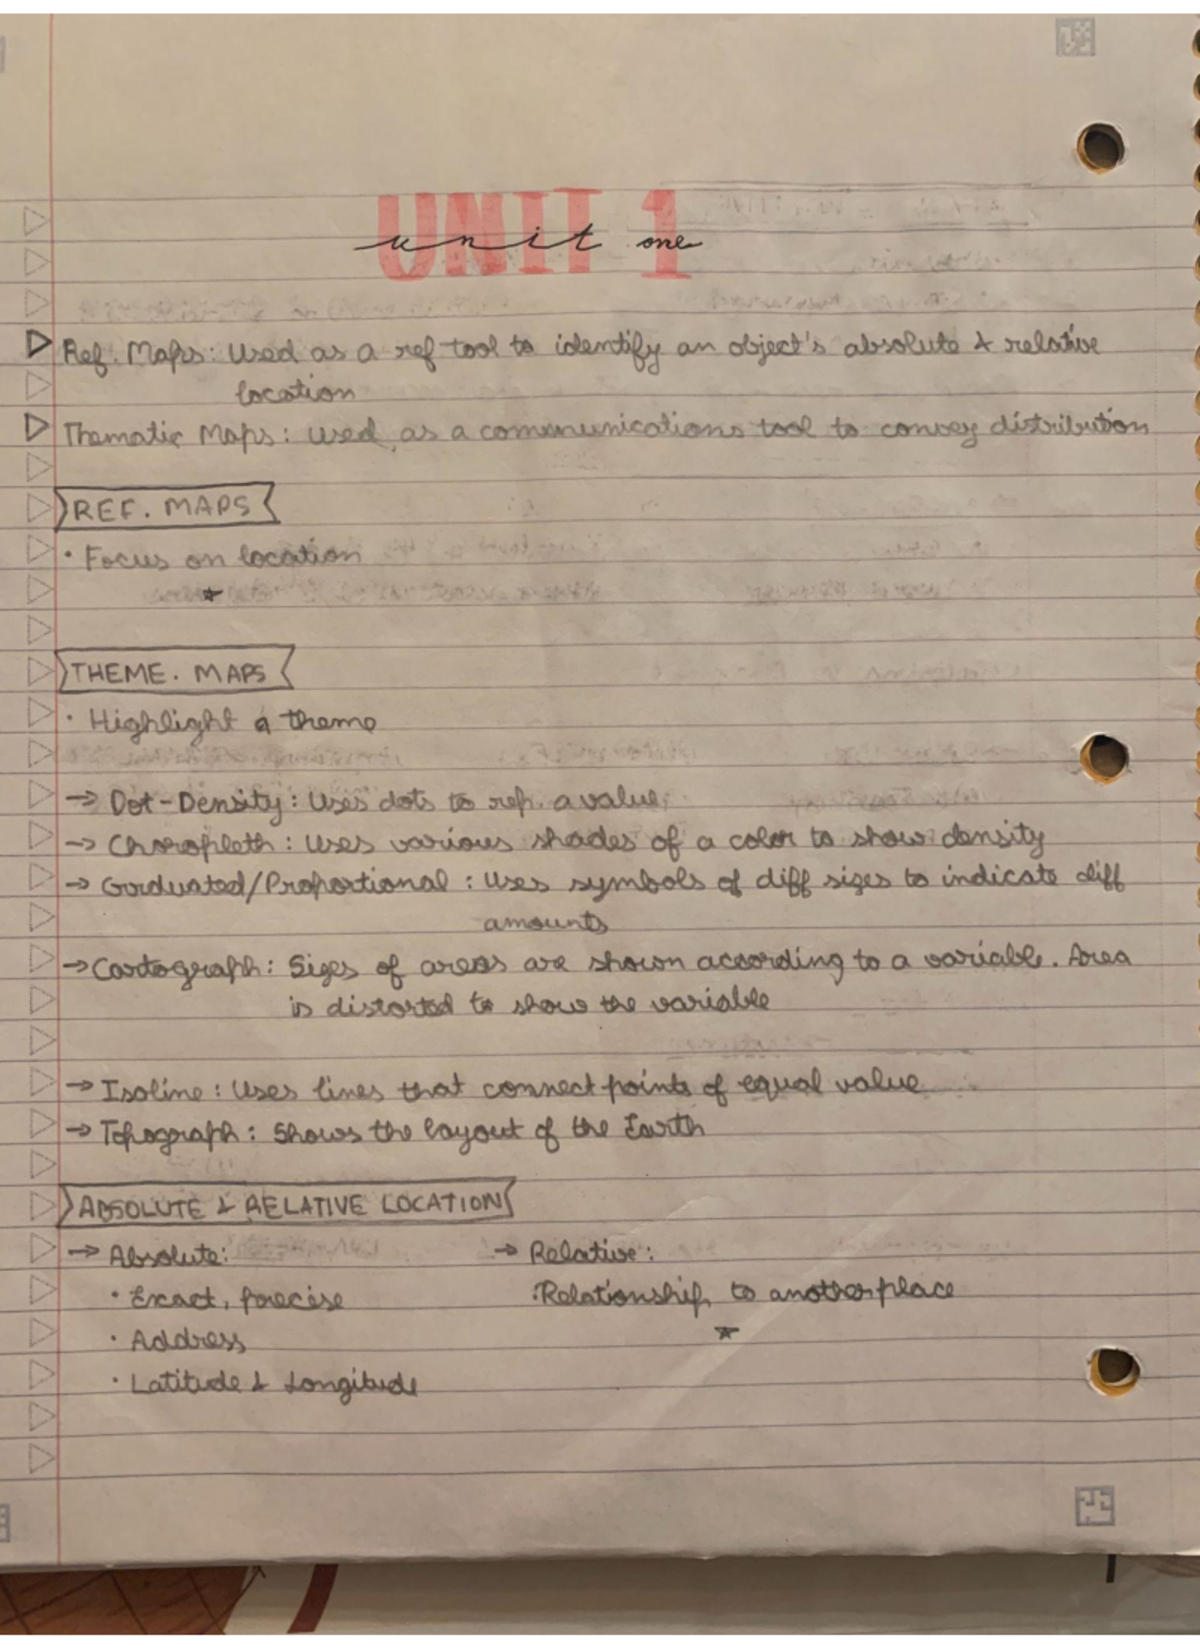 UNIT 1
unit one
Ref. Maps: Used as a ref tool to identify an object's absolute & relative
location
Thematic Maps: used as a communications tool to convey distribution
REF. MAPS
• Focus on location
THEME. MAPS
• Highlight a theme
→ Dot-Density: Uses dots to rep. a value
→ Choropleth: Uses various shades of a color to show density
→ Graduated/Proportional: Uses symbols of diff sizes to indicate diff
amounts
→ Cartograph: Sizes of areas are shown according to a variable. Area
is distorted to show the variable
→ Isoline: Uses lines that connect points of equal value
→ Topograph: Shows the layout of the Earth
ABSOLUTE & RELATIVE LOCATION
→ Absolute: → Relative:
• Exact, precise •Relationship to another place
• Address
• Latitude & Longitude